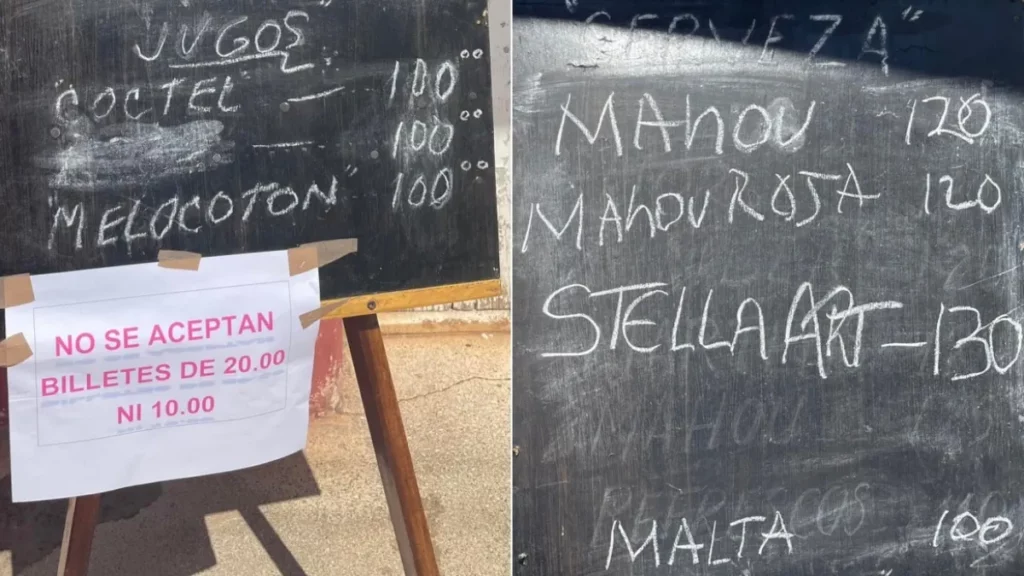 JUGOS
"COCTEL" — 100°°
— 100°°
"MELOCOTON" 100°°
NO SE ACEPTAN
BILLETES DE 20.00
NI 10.00
"CERVEZA"
MAHOU 120
MAHOU ROJA 120
STELLA ART - 130
MAHOU
REFRESCOS
MALTA 100